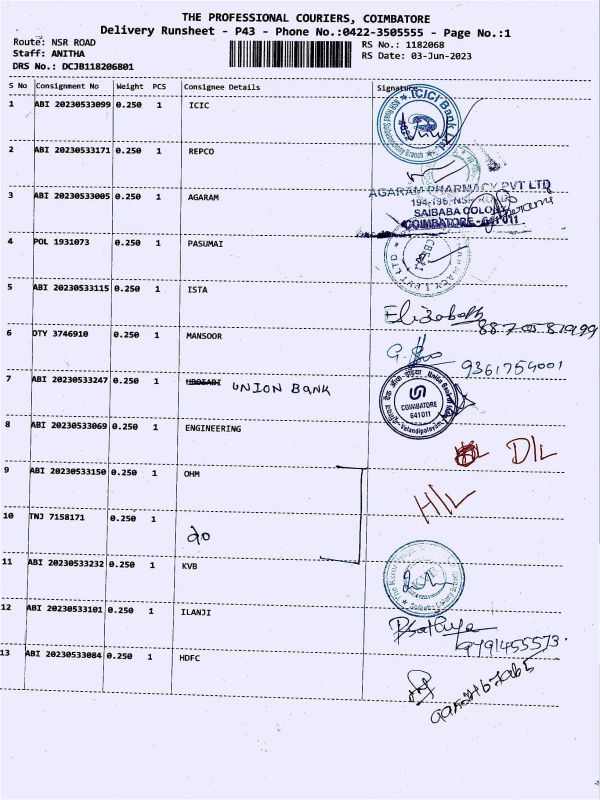 THE PROFESSIONAL COURIERS, COIMBATORE
Delivery Runsheet - P43 - Phone No.:0422-3505555 - Page No.:1
Route: NSR ROAD
Staff: ANITHA
DRS No.: DCJB118206801
RS No.: 1182068
RS Date: 03-Jun-2023
S No Consignment No Weight PCS Consignee Details Signature
1 ABI 20230533099 0.250 1 ICIC
ICICI Bank Ltd.
2 ABI 20230533171 0.250 1 REPCO
3 ABI 20230533005 0.250 1 AGARAM
AGARAM PHARMACY PVT LTD
194-196, NSR ROAD
SAIBABA COLONY
COIMBATORE - 641 011
4 POL 1931073 0.250 1 PASUMAI
5 ABI 20230533115 1 ISTA
Elizabath
6 DTY 3746910 0.250 1 MANSOOR
9361754001
7 ABI 20230533247 0.250 1 UNION BANK
COIMBATORE
641 011
8 ABI 20230533069 0.250 1 ENGINEERING
D/L
9 ABI 20230533150 0.250 1 OHM
H/L
10 TNJ 7158171 0.250 1
do
11 ABI 20230533232 0.250 1 KVB
12 ABI 20230533101 0.250 1 ILANJI
9791455573
13 ABI 20230533084 0.250 1 HDFC